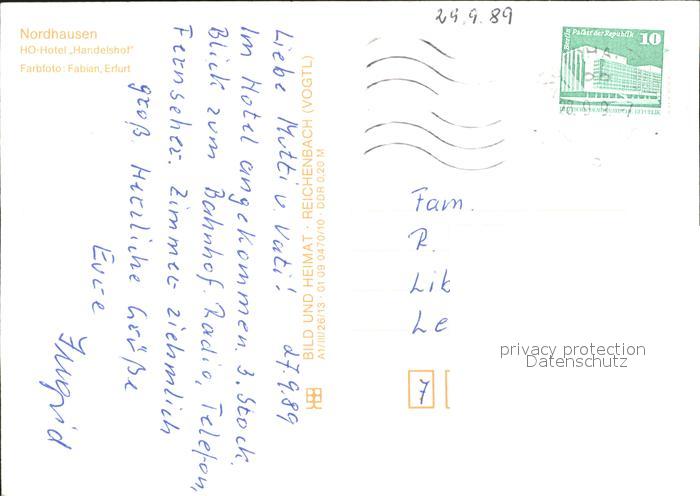 Nordhausen
HO-Hotel „Handelshof"
Farbfoto: Fabian, Erfurt
Liebe Mutti u. Vati! 27.9.89
Im Hotel angekommen. 3. Stock.
Blick zum Bahnhof. Radio, Telefon,
Fernseher. Zimmer ziehmlich
groß. Herzliche Grüße
Eure
Ingrid
BILD UND HEIMAT · REICHENBACH (VOGTL)
A1/III/26/13 · 01 09 0470/10 · DDR 0,20 M
29.9.89
Berlin Palast der Republik 10
DEUTSCHE DEMOKRATISCHE REPUBLIK
Fam.
R.
Lik
Le
7
privacy protection
Datenschutz